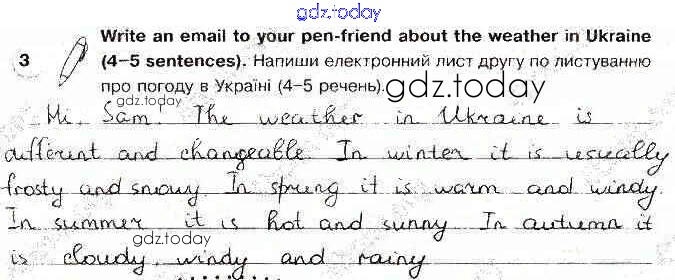 gdz.today
Write an email to your pen-friend about the weather in Ukraine
3 (4–5 sentences). Напиши електронний лист другу по листуванню
про погоду в Україні (4–5 речень).
gdz.today
gdz.today
Hi, Sam! The weather in Ukraine is
different and changeable. In winter it is usually
frosty and snowy. In spring it is warm and windy.
gdz.today
In summer it is hot and sunny. In autumn it
gdz.today
is cloudy, windy and rainy
gdz.today